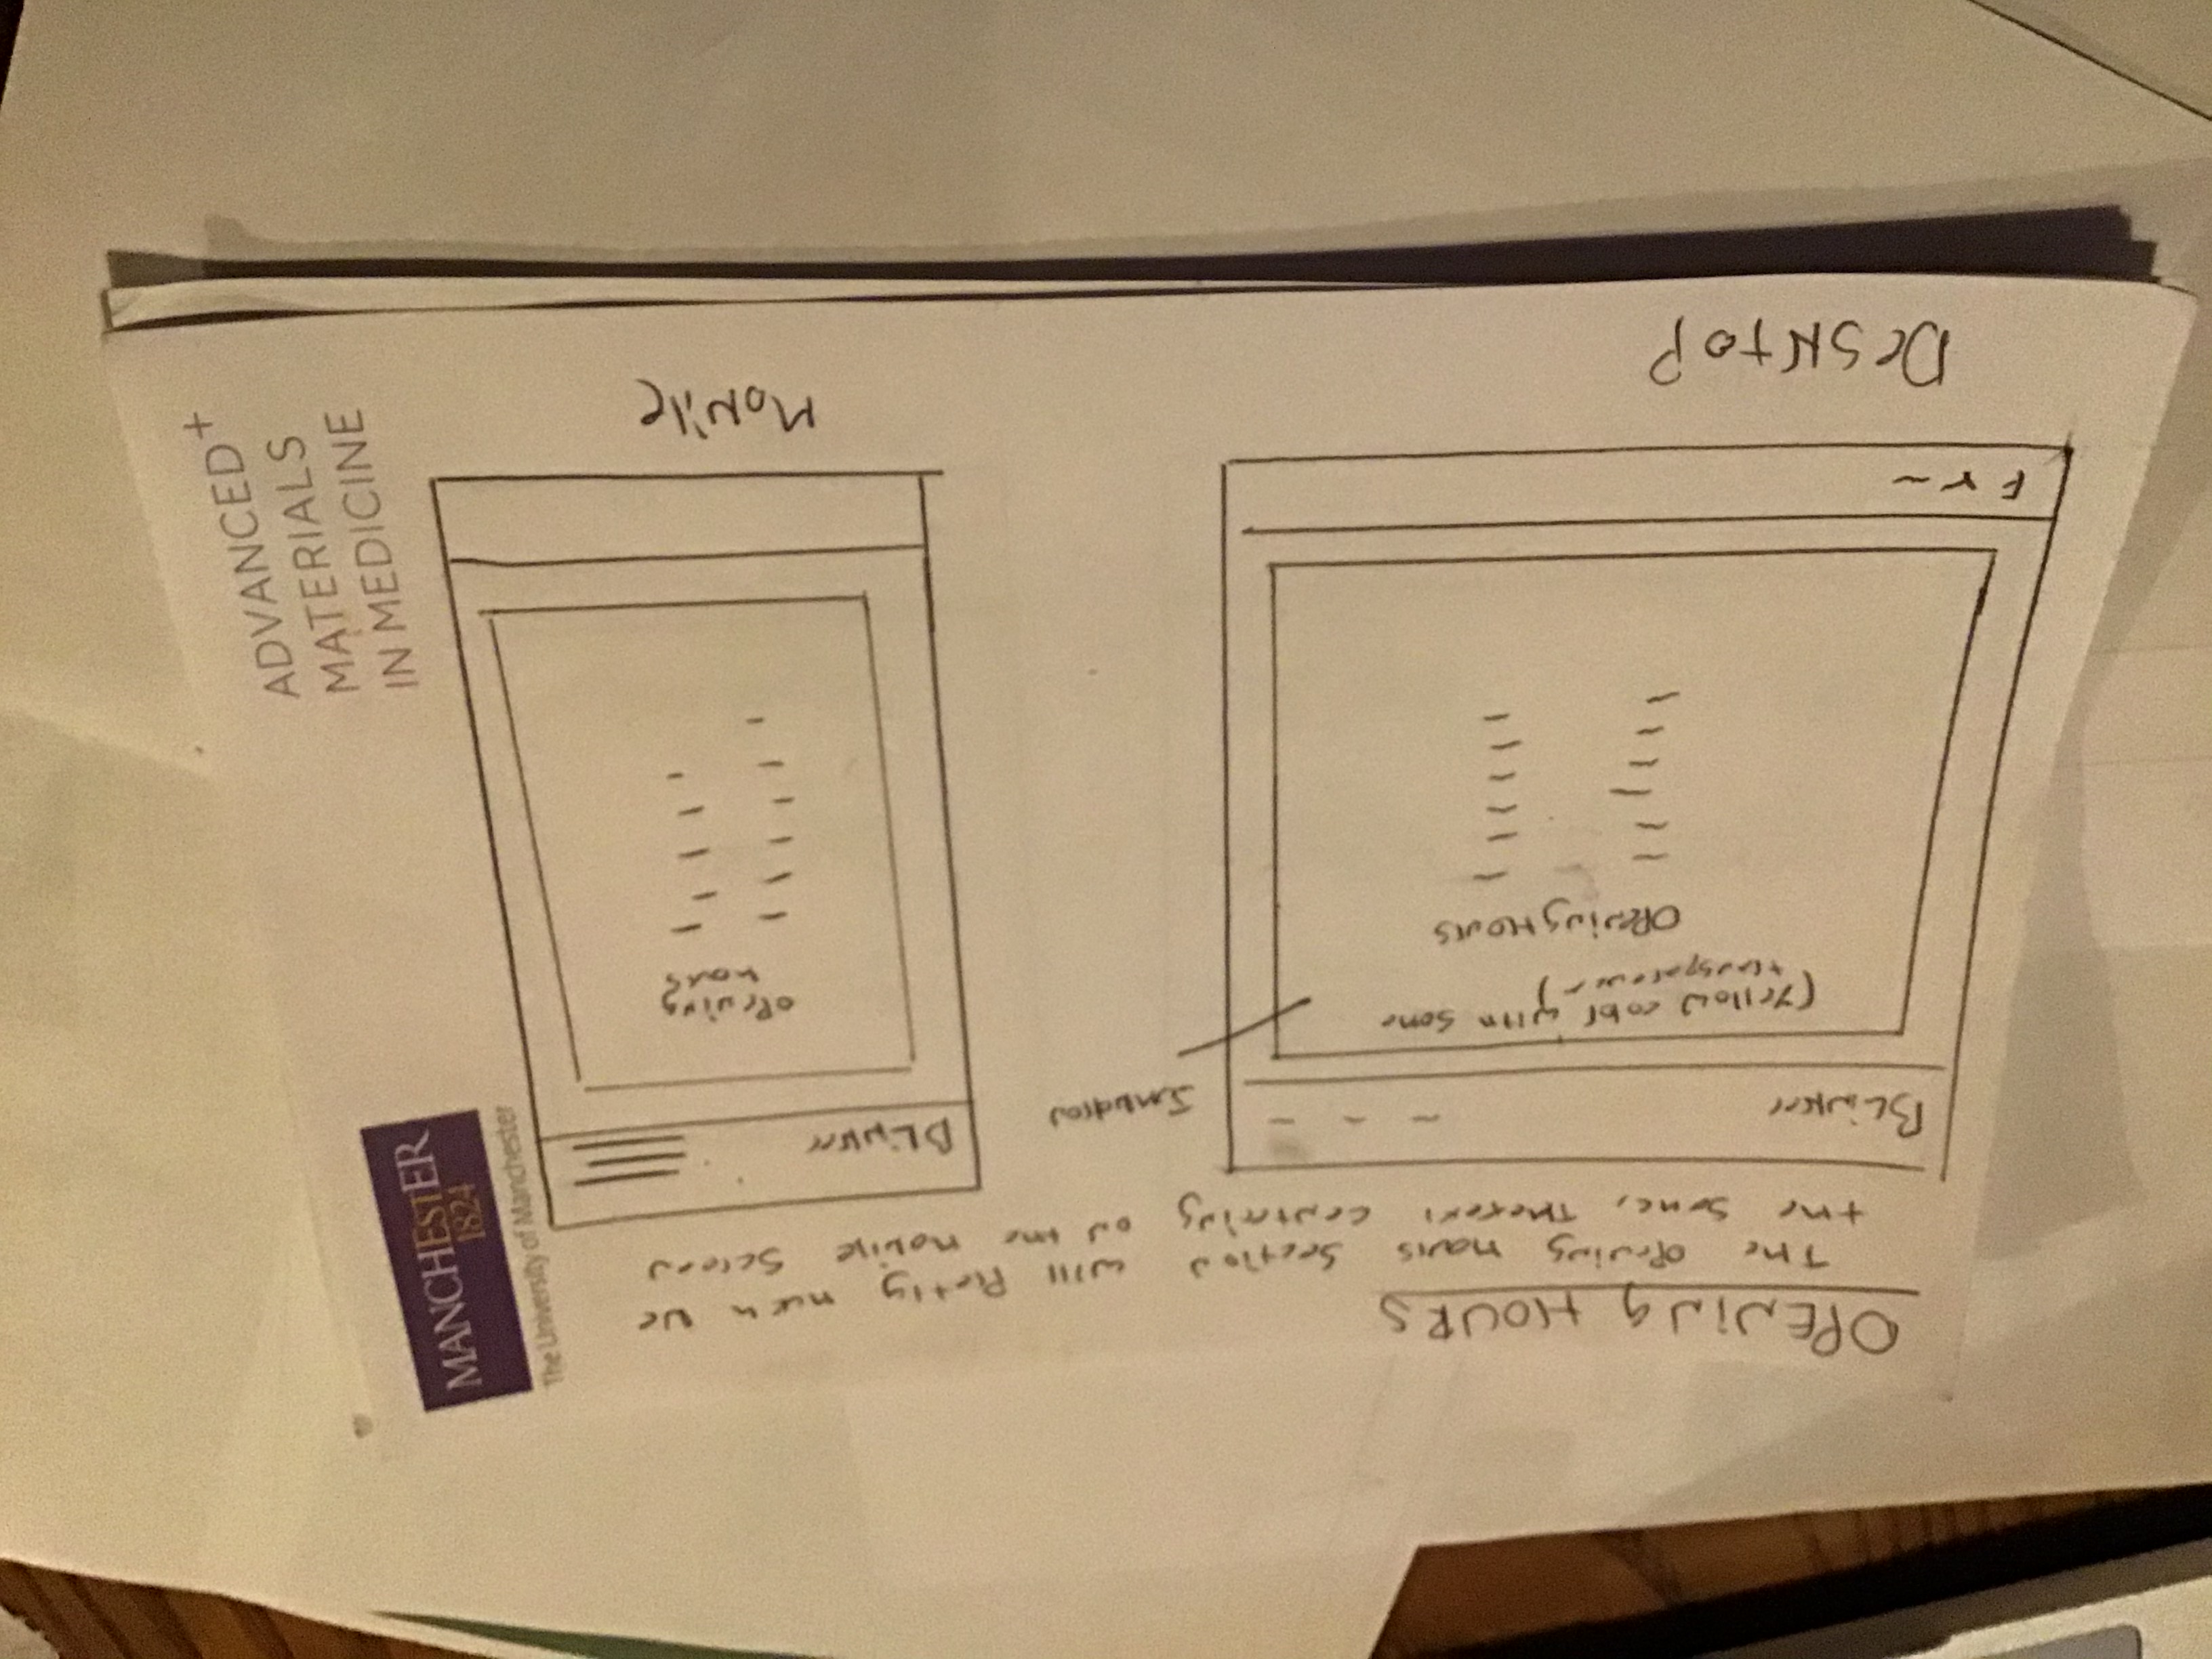 OPENING HOURS
The opening hours section will pretty much be
the same, the text centering on the mobile screen
Blinker
(Yellow color with some
transparency)
Opening Hours
F
DESKTOP
Blinker
opening
hours
Mobile
MANCHESTER
1824
The University of Manchester
ADVANCED+
MATERIALS
IN MEDICINE